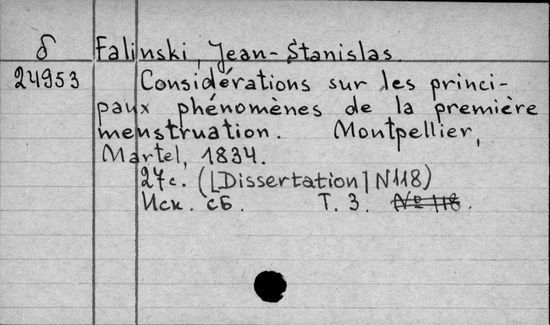 δ Falinski, Jean-Stanislas.
24953 Considérations sur les princi-
paux phénomènes de la première
menstruation. Montpellier,
Martel, 1834.
27c. ([Dissertation] N118)
Иск. сб. Т. 3. № 118.